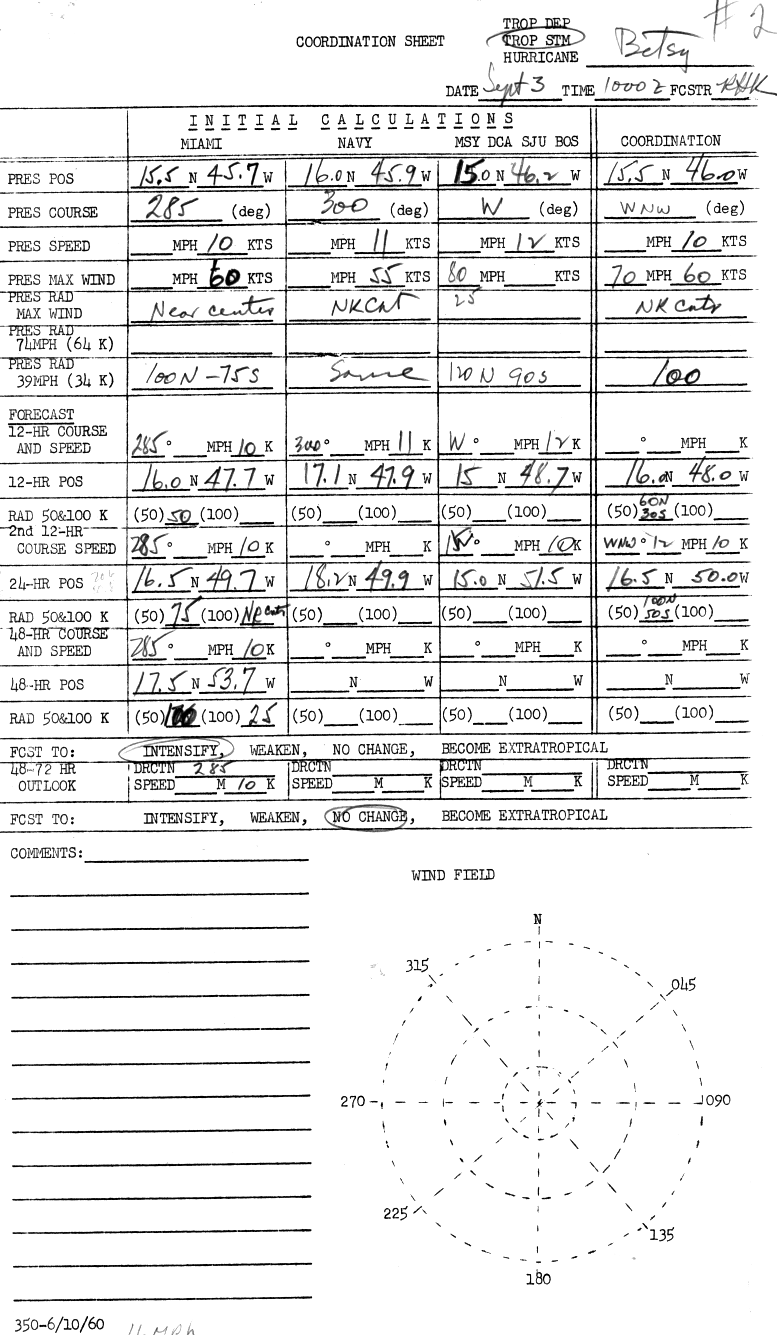 # 2
TROP DEP
COORDINATION SHEET TROP STM Betsy
HURRICANE
DATE Sept 3 TIME 1000 Z FCSTR RHK
INITIAL CALCULATIONS
MIAMI NAVY MSY DCA SJU BOS COORDINATION
PRES POS 15.5 N 45.7 W 16.0 N 45.9 W 15.0 N 46.2 W 15.5 N 46.0 W
PRES COURSE 285 (deg) 300 (deg) W (deg) WNW (deg)
PRES SPEED MPH 10 KTS MPH 11 KTS MPH 12 KTS MPH 10 KTS
PRES MAX WIND MPH 60 KTS MPH 55 KTS 80 MPH KTS 70 MPH 60 KTS
PRES RAD
MAX WIND Near center NR Cnt 25 NR Cntr
PRES RAD
74MPH (64 K)
PRES RAD
39MPH (34 K) 100N - 75S Same 120 N 90S 100
FORECAST
12-HR COURSE
AND SPEED 285° MPH 10 K 300° MPH 11 K W° MPH 12 K ° MPH K
12-HR POS 16.0 N 47.7 W 17.1 N 47.9 W 15 N 48.7 W 16.0 N 48.0 W
RAD 50&100 K (50) 50 (100) (50) (100) (50) (100) (50) 60N 30S (100)
2nd 12-HR
COURSE SPEED 285° MPH 10 K ° MPH K W° MPH 10 K WNW° 12 MPH 10 K
24-HR POS 16.5 N 49.7 W 18.2 N 49.9 W 15.0 N 51.5 W 16.5 N 50.0 W
RAD 50&100 K (50) 75 (100) NR Cntr (50) (100) (50) (100) (50) 100N 50S (100)
48-HR COURSE
AND SPEED 285° MPH 10 K ° MPH K ° MPH K ° MPH K
48-HR POS 17.5 N 53.7 W N W N W N W
RAD 50&100 K (50) 100 (100) 25 (50) (100) (50) (100) (50) (100)
FCST TO: INTENSIFY, WEAKEN, NO CHANGE, BECOME EXTRATROPICAL
48-72 HR DRCTN 285 DRCTN DRCTN DRCTN
OUTLOOK SPEED M 10 K SPEED M K SPEED M K SPEED M K
FCST TO: INTENSIFY, WEAKEN, NO CHANGE, BECOME EXTRATROPICAL
COMMENTS:
WIND FIELD
N
315 045
270 090
225 135
180
350-6/10/60 11 MPH